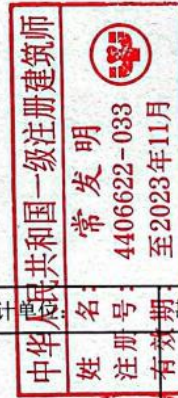 中华人民共和国一级注册建筑师
姓 名：常发明
注册号：4406622-033
有效期：至2023年11月
计单位：